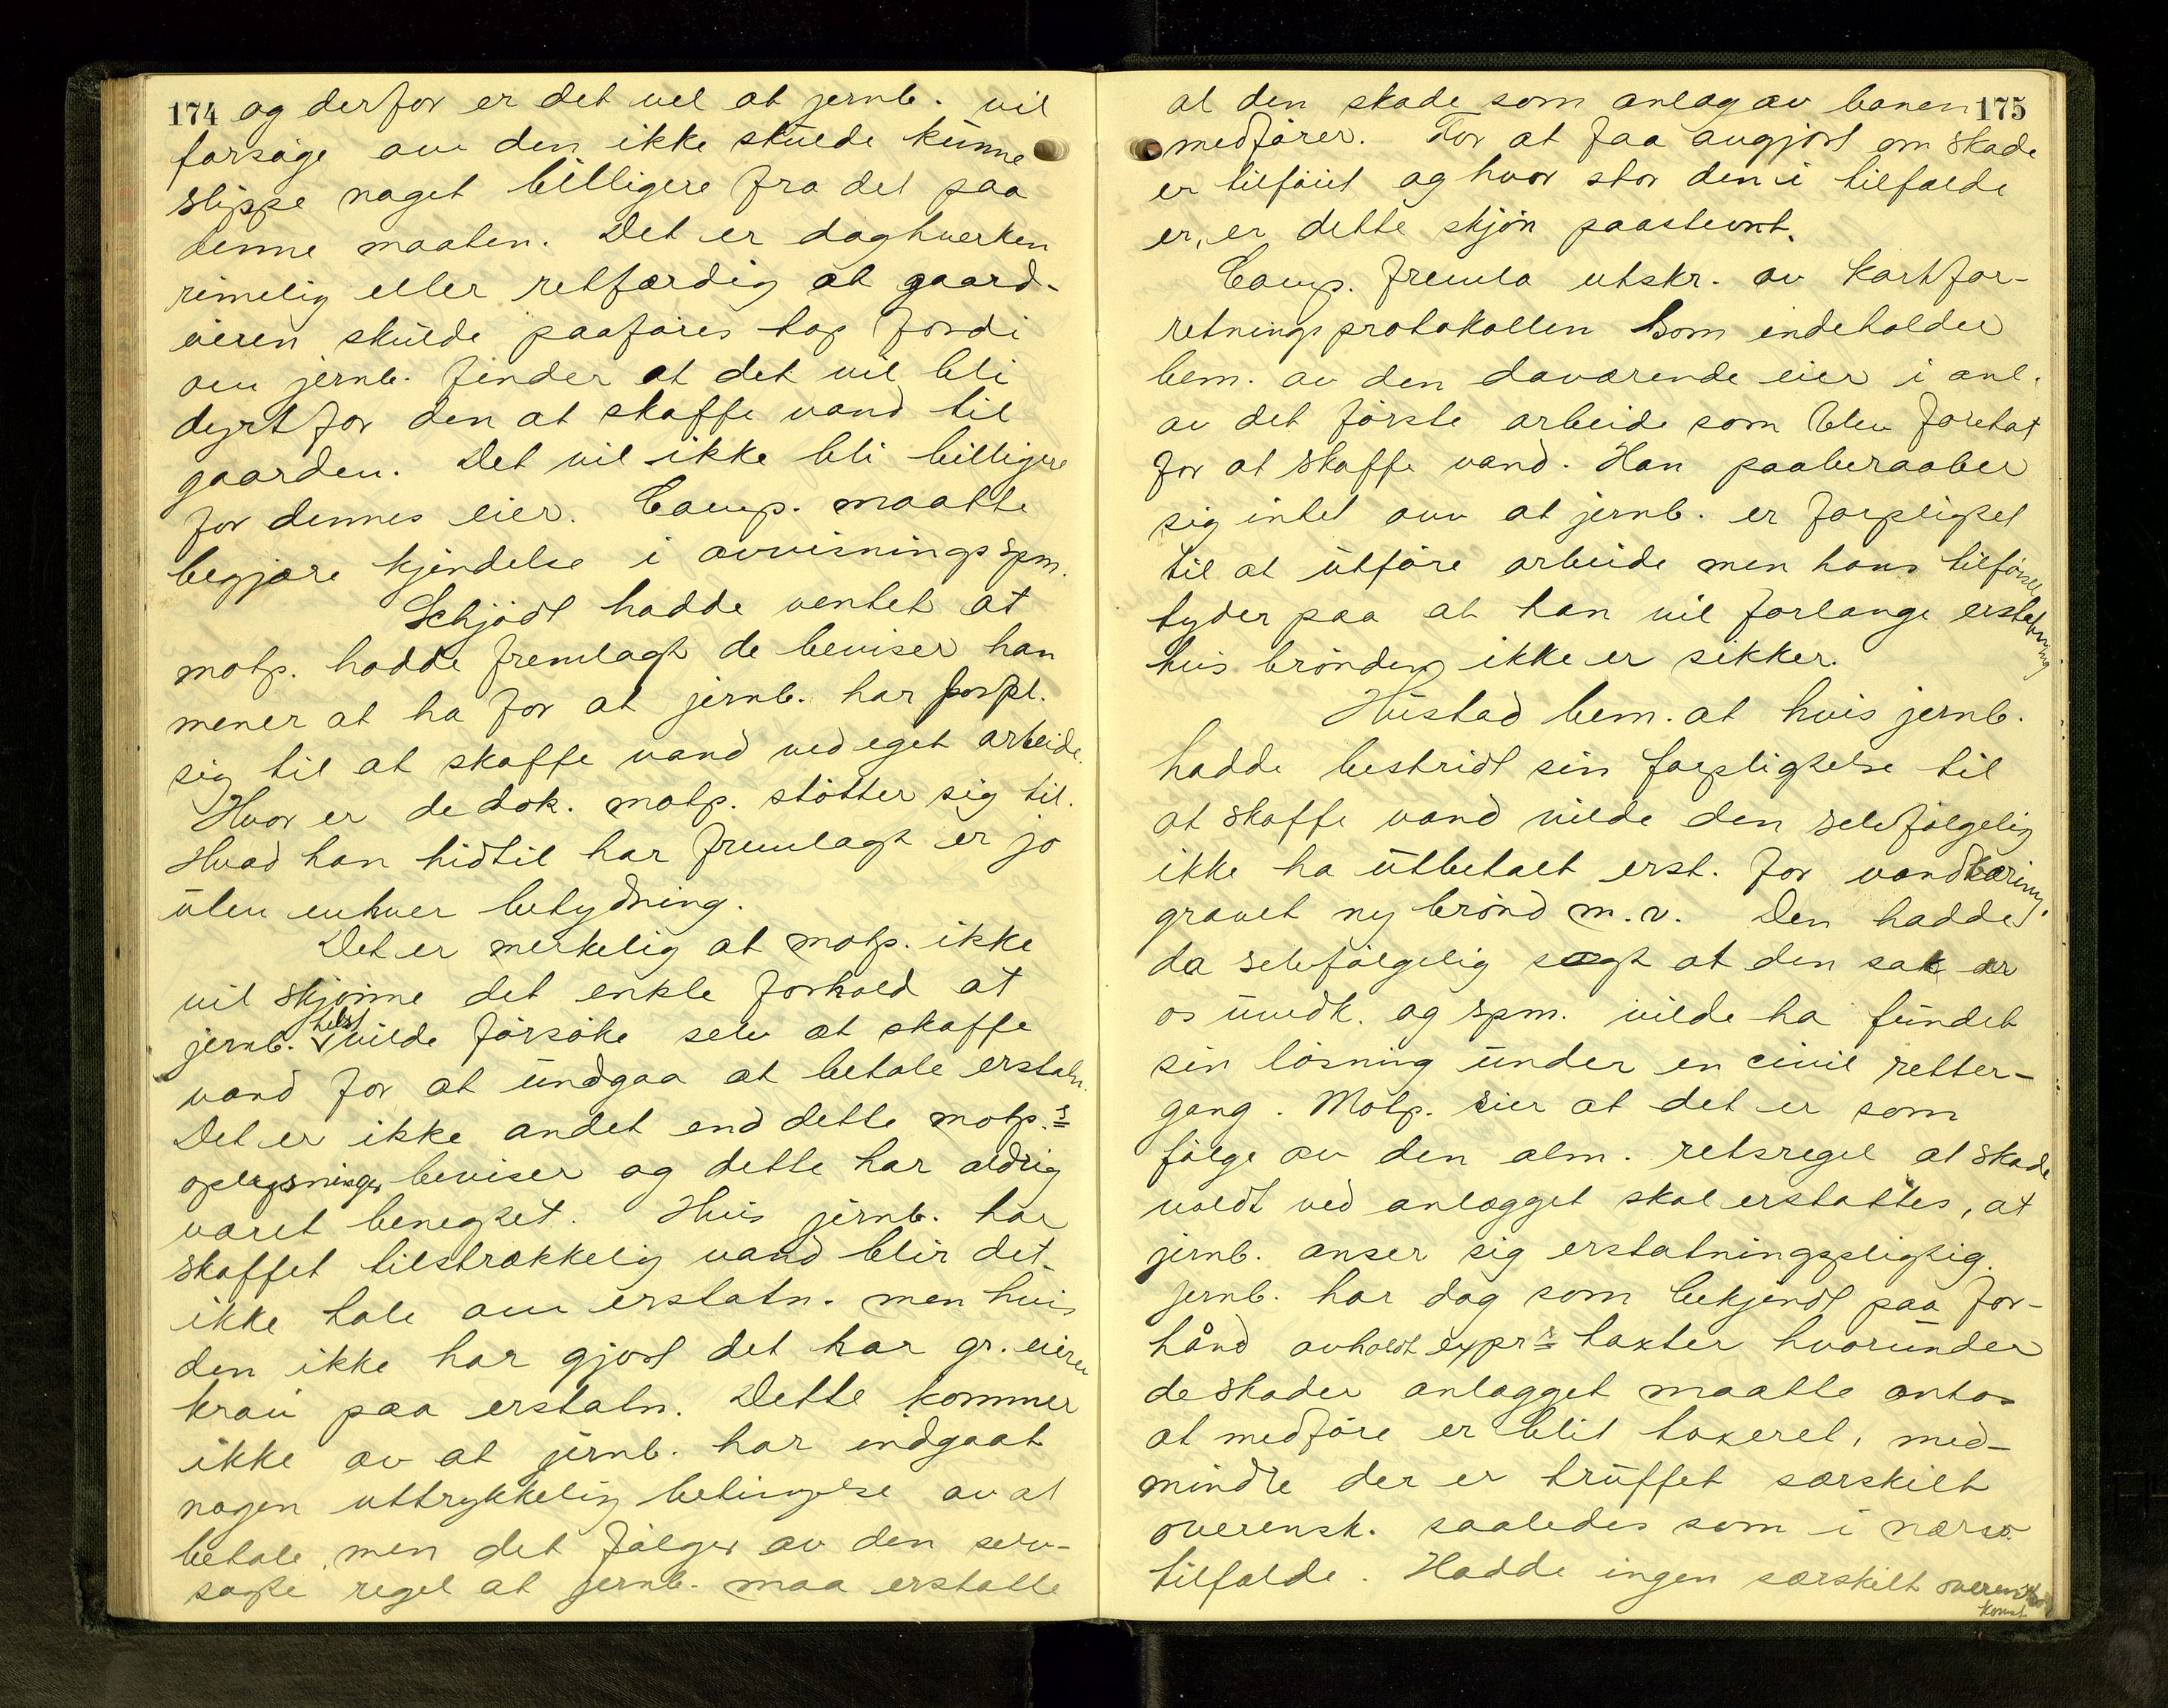 174 og derfor er det vel at jernb. vil
forsøge om den ikke skulde kunne
slippe noget billigere fra det paa
denne maaten. Det er dog hverken
rimelig eller retfærdig at gaard-
eieren skulde paaføres tap fordi
om jernb. finder at det vil bli
dyrt for den at skaffe vand til
gaarden. Det vil ikke bli billigere
for dennes eier. Comp. maatte
begjære kjendelse i avvisningsspm.
Schjødt hadde ventet at
motp. hadde fremlagt de beviser han
mener at ha for at jernb. har forpl.
sig til at skaffe vand ved eget arbeide.
Hvor er de dok. motp. støtter sig til.
Hvad han hidtil har fremlagt er jo
uten enhver betydning.
Det er merkelig at motp. ikke
vil skjønne det enkle forhold at
jernb. helst vilde försöke selv at skaffe
vand for at undgaa at betale erstatn.
Det er ikke andet end dette motp.s
oplysninger beviser og dette har aldrig
været benegtet. Hvis jernb. har
skaffet tilstrækkelig vand blir det
ikke tale om erstatn. men hvis
den ikke har gjort det har gr. eieren
krav paa erstatn. Dette kommer
ikke av at jernb. har indgaat
nogen uttrykkelig betingelse av at
betale, men det følger av den selv-
sagte regel at jernb. maa erstatte
al den skade som anlæg av banen 175
medfører. For at faa avgjort om skade
er tilføiet og hvor stor den i tilfælde
er, er dette skjøn paastevnt.
Comp. fremla utskr. av kartfor-
retningsprotokollen som indeholder
bem. av den daværende eier i anl.
av det første arbeide som blev foretat
for at skaffe vand. Han paaberaaber
sig intet om at jernb. er forpligtet
til at utføre arbeide men hans tilførsel
tyder paa at han vil forlange erstatning
hvis brønden ikke er sikker.
Hustad bem. at hvis jernb.
hadde bestridt sin forpligtelse til
at skaffe vand vilde den selvfølgelig
ikke ha utbetalt erst. for vandbæring,
gravet ny brønd m.v. Den hadde
da selvfølgelig sagt at den sak er
os uvedk. og spm. vilde ha fundet
sin løsning under en civil retter-
gang. Motp. sier at det er som
følge av den alm. retsregel at skade
voldt ved anlægget skal erstattes, at
jernb. anser sig erstatningspligtig.
Jernb. har dog som bekjendt paa for-
hånd avholdt exprs takster hvorunder
de skader anlægget maatte antas
at medføre er blit taxeret, med-
mindre der er truffet særskilt
overensk. saaledes som i nærv.
tilfælde. Hadde ingen særskilt overens-
komst